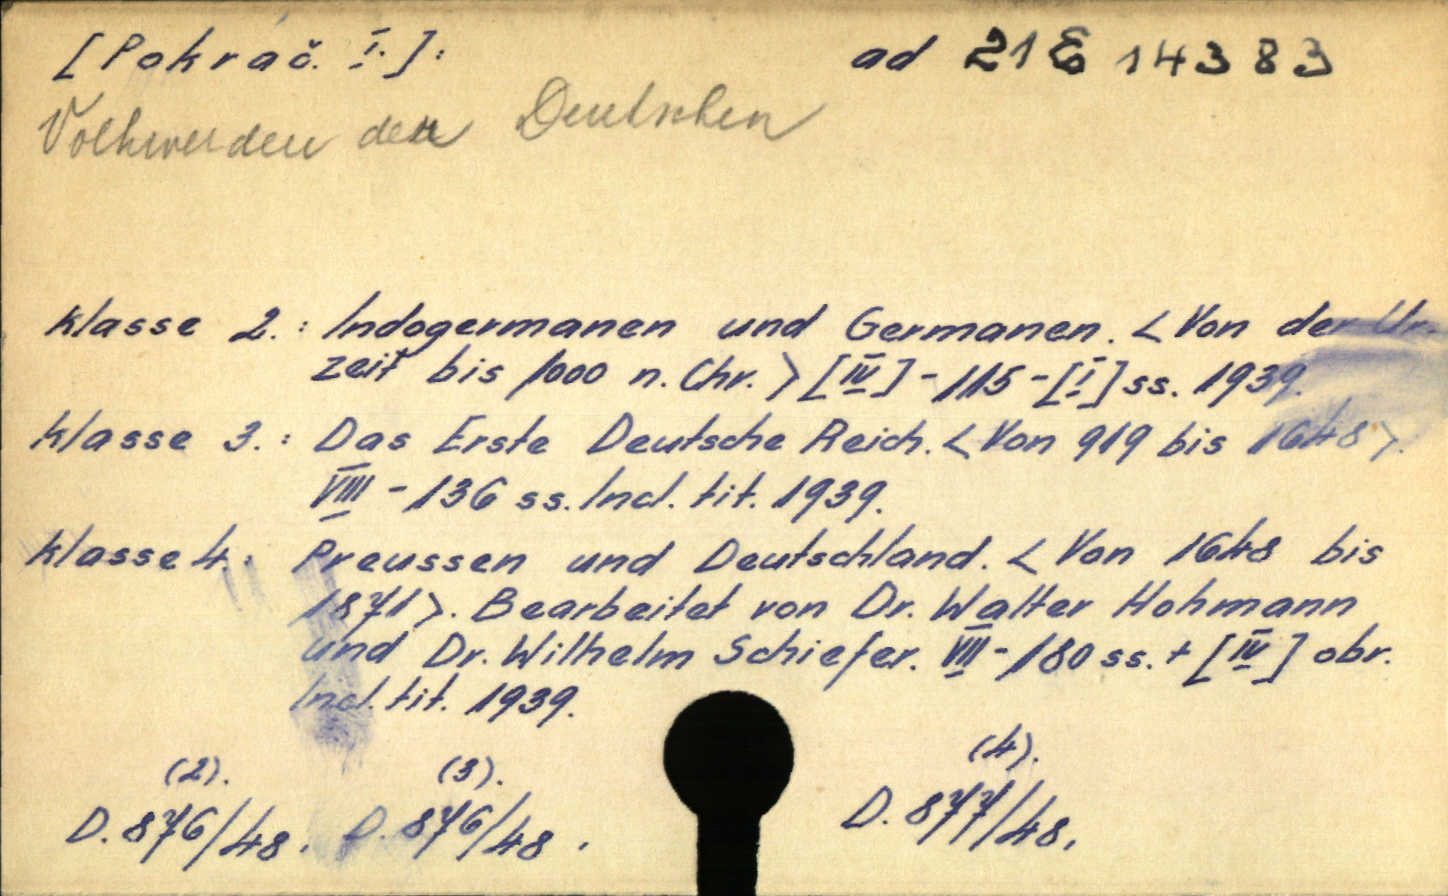 [Pokrač. I.]: ad 21 E 14383
Volkwerden der Deutschen
Klasse 2.: Indogermanen und Germanen. <Von der Ur-
zeit bis 1000 n. Chr.> [IV] - 115 - [I] ss. 1939.
Klasse 3.: Das Erste Deutsche Reich. <Von 919 bis 1648>.
VIII - 136 ss. Incl. tit. 1939.
Klasse 4.: Preussen und Deutschland. <Von 1648 bis
1871>. Bearbeitet von Dr. Walter Hohmann
und Dr. Wilhelm Schiefer. VIII - 180 ss. + [IV] obr.
Incl. tit. 1939.
(2). (3). (4).
D. 876/48. D. 876/48. D. 877/48.